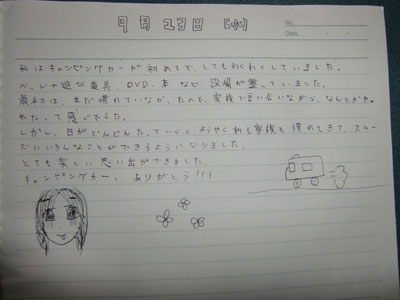 9月23日 (水)
No.
Date
私はキャンピングカーが初めてで、とてもわくわくしていました。
ベッドや遊び道具、DVD、本など、設備が整っていました。
最初は、まだ慣れていなかったので、家族で言い合いながら、なんとかやれたって感じでした。
しかし、日がどんどんたっていくと、ようやく私も家族も慣れてきて、スムーズにいろんなことができるようになりました。
とても楽しい思い出ができました。
キャンピングカー、ありがとう!!!